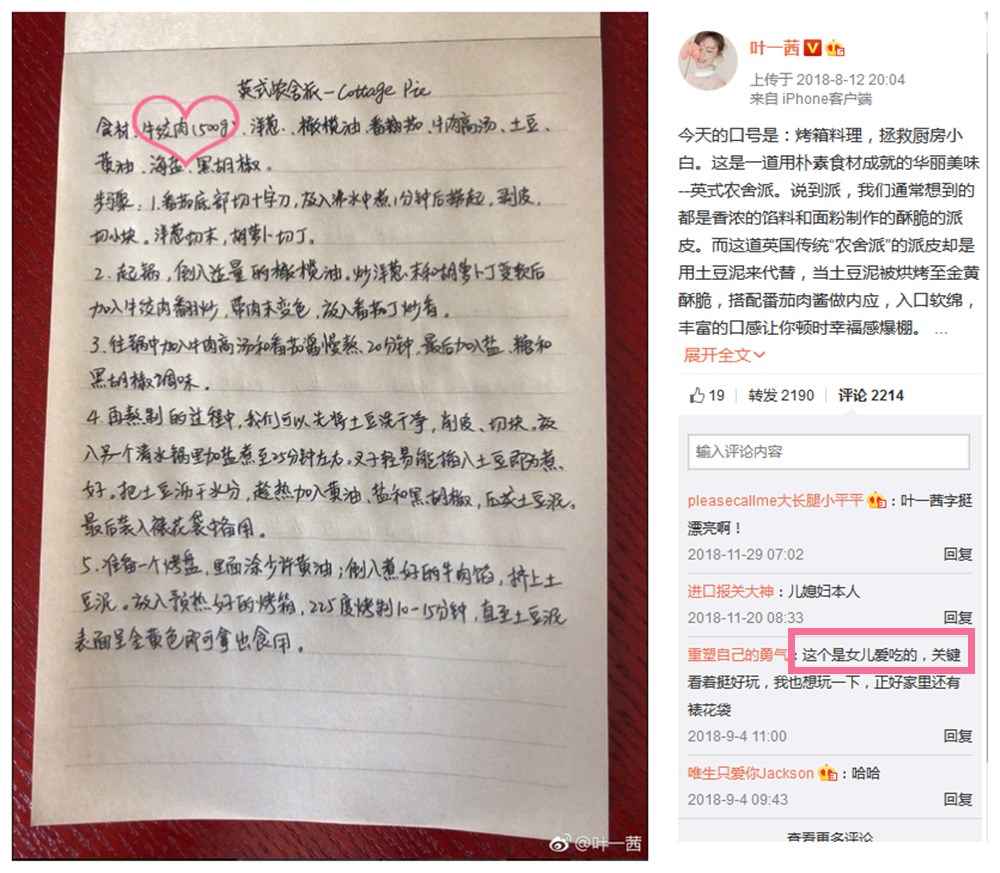 英式农舍派-Cottage Pie
食材:牛绞肉(500g)、洋葱、橄榄油、番茄、牛肉高汤、土豆、
黄油、海盐、黑胡椒。
步骤:1.番茄底部切十字刀,放入沸水中煮1分钟后捞起,剥皮,
切小块。洋葱切末,胡萝卜切丁。
2.起锅,倒入适量的橄榄油。炒洋葱末和胡萝卜丁变软后
加入牛绞肉翻炒,带肉末变色,放入番茄丁炒香。
3.往锅中加入牛肉高汤和番茄酱慢熬20分钟,最后加入盐、糖和
黑胡椒调味。
4.再熬制的过程中,我们可以先将土豆洗干净,削皮、切块。放
入另一个清水锅里加盐煮至25分钟左右。叉子轻易能插入土豆即为煮
好。把土豆沥干水分,趁热加入黄油、盐和黑胡椒,压成土豆泥。
最后装入裱花袋中备用。
5.准备一个烤盘,里面涂少许黄油;倒入煮好的牛肉馅,挤上土
豆泥。放入预热好的烤箱,225度烤制10-15分钟,直至土豆泥
表面呈金黄色即可拿出食用。
@叶一茜
叶一茜
上传于 2018-8-12 20:04
来自 iPhone客户端
今天的口号是:烤箱料理,拯救厨房小
白。这是一道用朴素食材成就的华丽美味
--英式农舍派。说到派,我们通常想到的
都是香浓的馅料和面粉制作的酥脆的派
皮。而这道英国传统“农舍派”的派皮却是
用土豆泥来代替,当土豆泥被烘烤至金黄
酥脆,搭配番茄肉酱做内应,入口软绵,
丰富的口感让你顿时幸福感爆棚。 ...
展开全文
19 转发 2190 评论 2214
输入评论内容
pleasecallme大长腿小平平:叶一茜字挺
漂亮啊!
2018-11-29 07:02 回复
进口报关大神:儿媳妇本人
2018-11-20 08:33 回复
重塑自己的勇气:这个是女儿爱吃的,关键
看着挺好玩,我也想玩一下,正好家里还有
裱花袋
2018-9-4 11:00 回复
唯生只爱你Jackson:哈哈
2018-9-4 09:43 回复
查看更多评论